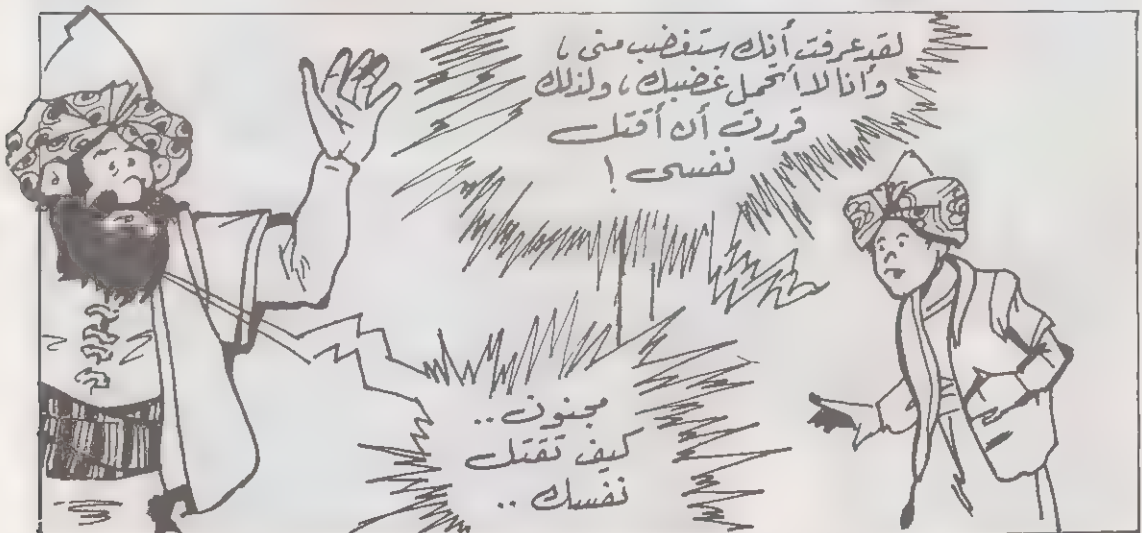 لقد عرفت أنك ستغضب منى ،
وأنا لا أتحمل غضبك ، ولذلك
قررت أن أقتل
نفسى !
مجنون ..
كيف تقتل
نفسك ..